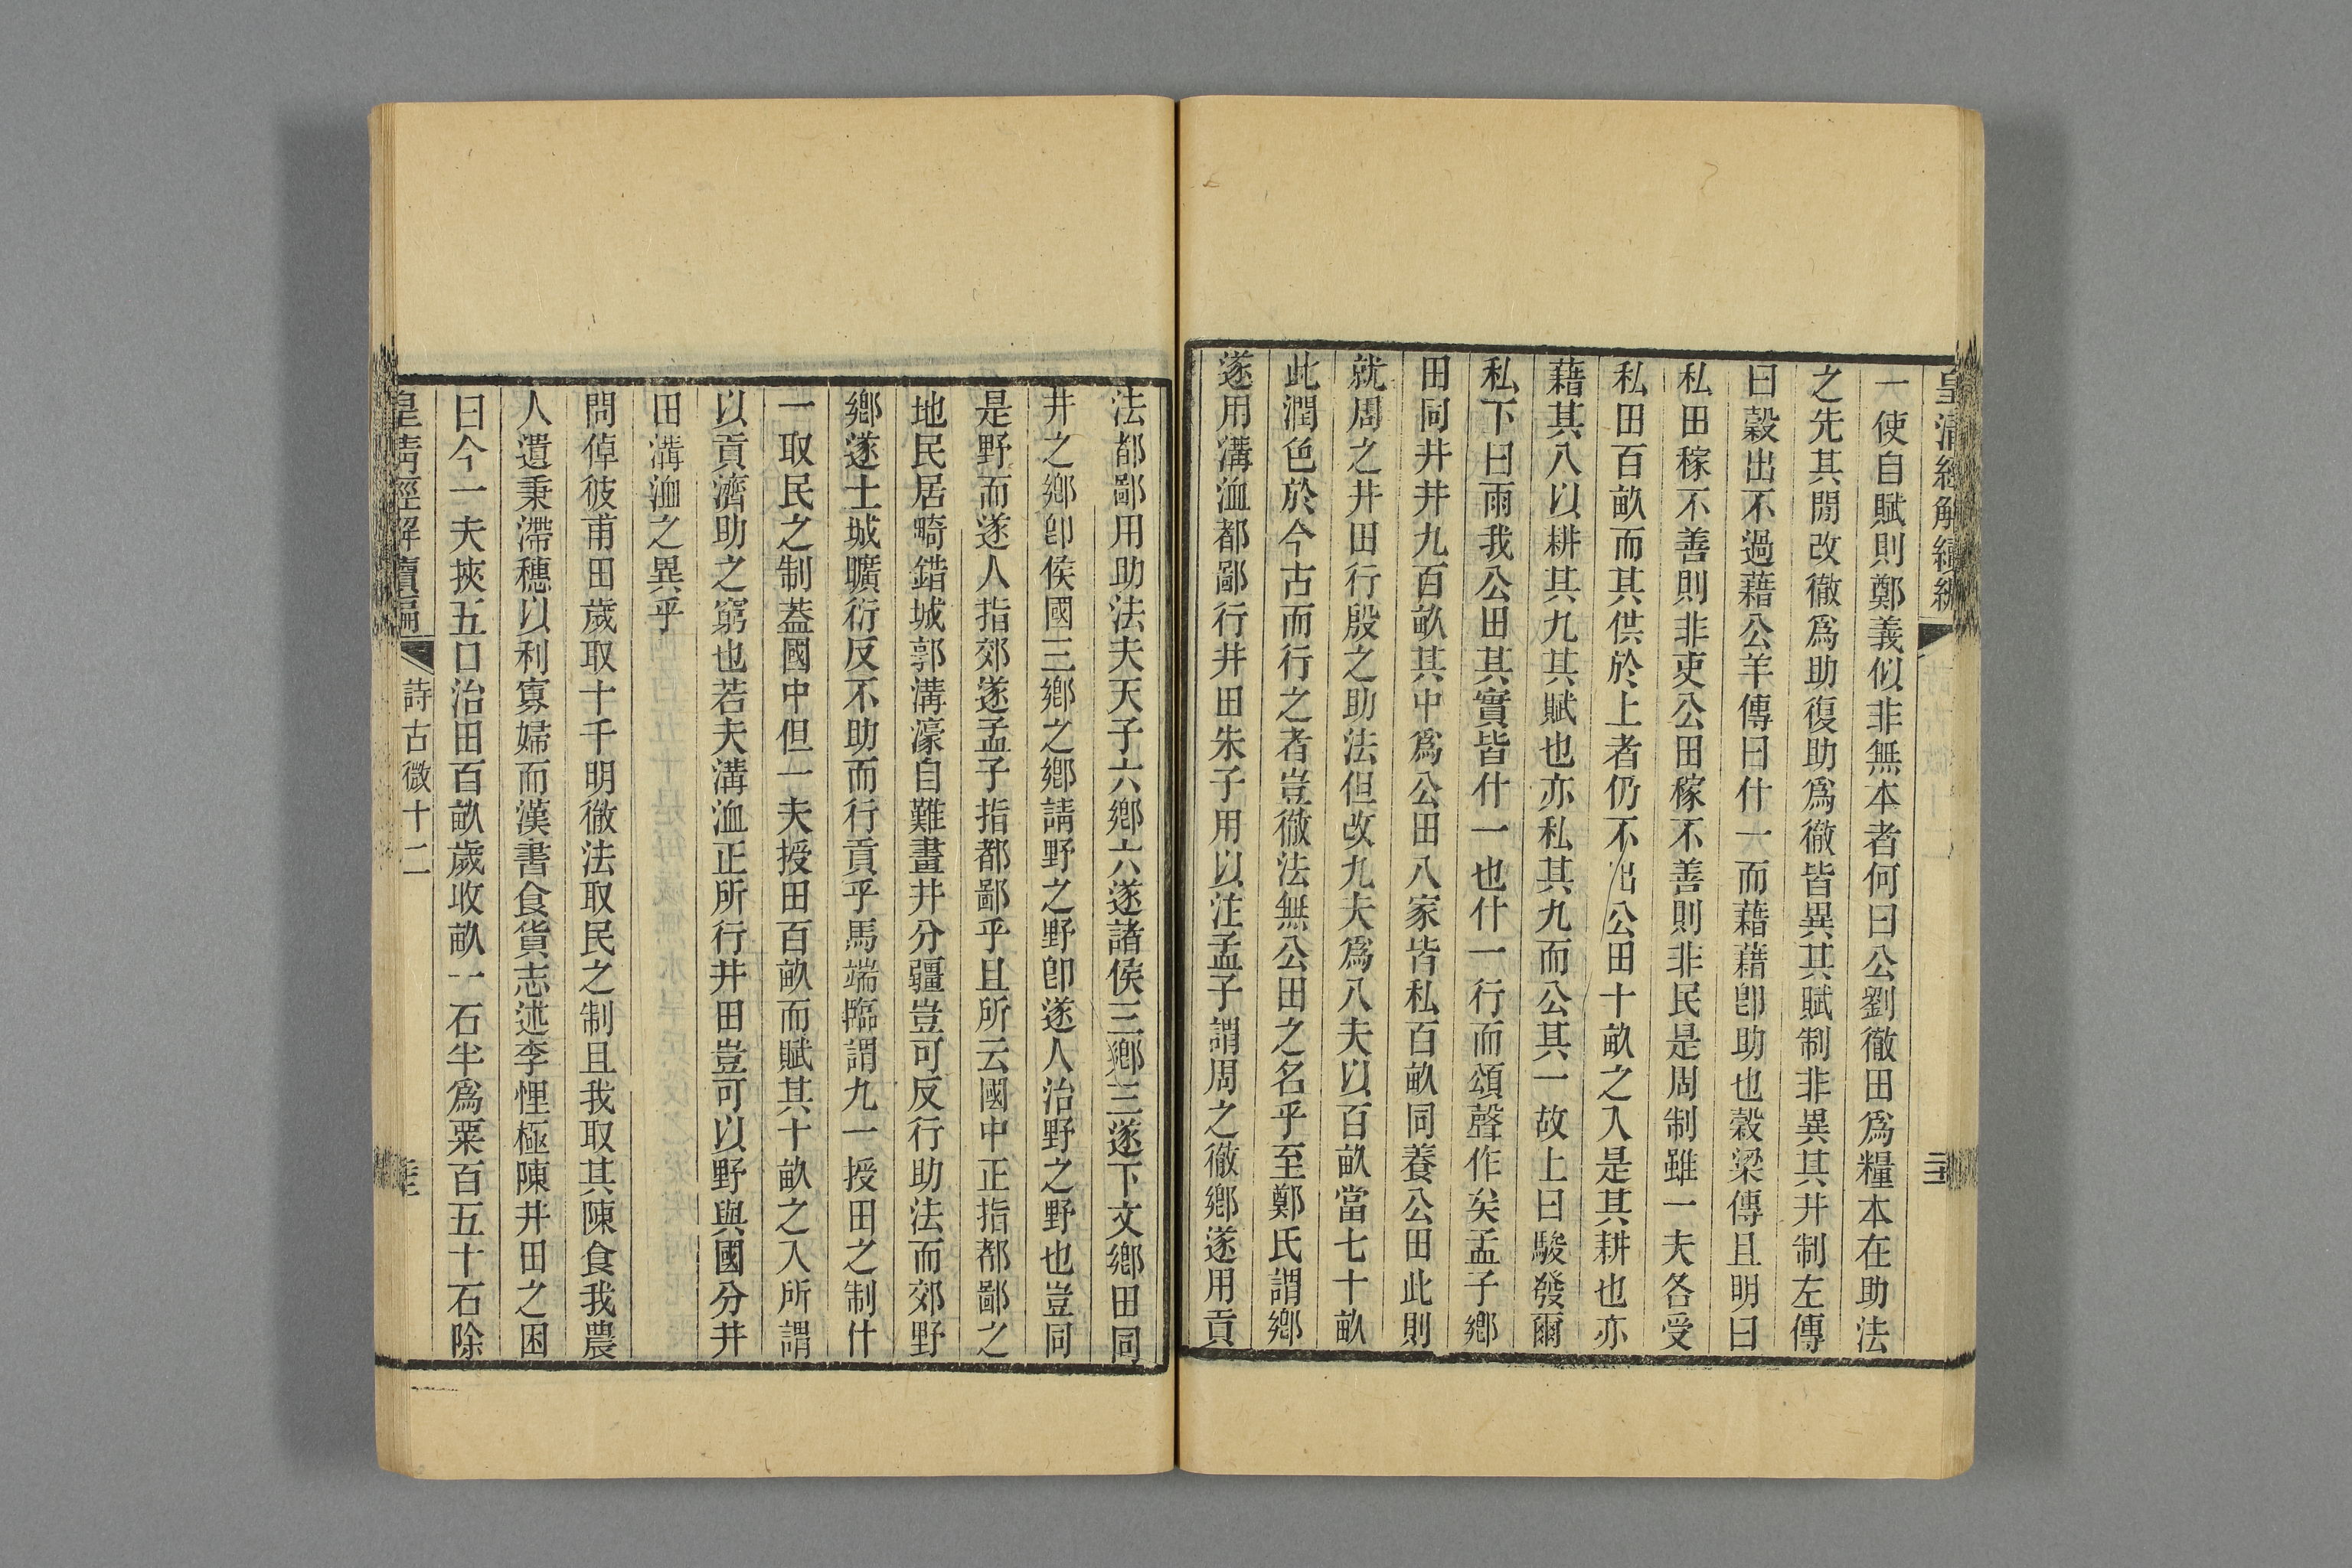 皇清經解續編
一使自賦則鄭義似非無本者何曰公劉徹田爲糧本在助法
之先其閒改徹爲助復助爲徹皆異其賦制非異其井制左傳
曰穀出不過藉公羊傳曰什一而藉藉卽助也穀梁傳且明曰
私田稼不善則非吏公田稼不善則非民是周制雖一夫各受
私田百畝而其供於上者仍不出公田十畝之入是其耕也亦
藉其八以耕其九其賦也亦私其九而公其一故上曰駿發爾
私下曰雨我公田其實皆什一也什一行而頌聲作矣孟子鄉
田同井井九百畝其中爲公田八家皆私百畝同養公田此則
就周之井田行殷之助法但改九夫爲八夫以百畝當七十畝
此潤色於今古而行之者豈徹法無公田之名乎至鄭氏謂鄉
遂用溝洫都鄙行井田朱子用以注孟子謂周之徹鄉遂用貢
法都鄙用助法夫天子六鄉六遂諸侯三鄉三遂下文鄉田同
井之鄉卽侯國三鄉之鄉請野之野卽遂人治野之野也豈同
是野而遂人指郊遂孟子指都鄙乎且所云國中正指都鄙之
地民居畸錯城郭溝濠自難畫井分疆豈可反行助法而郊野
鄉遂土城曠衍反不助而行貢乎馬端臨謂九一授田之制什
一取民之制蓋國中但一夫授田百畝而賦其十畝之入所謂
以貢濟助之窮也若夫溝洫正所行井田豈可以野與國分井
田溝洫之異乎
問倬彼甫田歲取十千明徹法取民之制且我取其陳食我農
人遺秉滯穗以利寡婦而漢書食貨志述李悝極陳井田之困
曰今一夫挾五口治田百畝歲收畝一石半爲粟百五十石除
皇清經解續編
詩古微十二